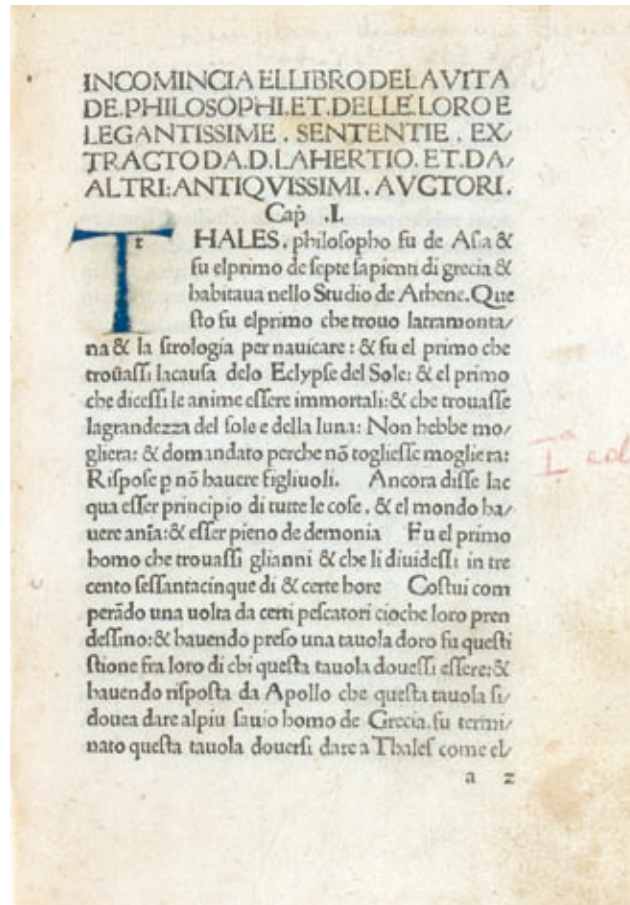 INCOMINCIA EL LIBRO DE LA VITA
DE.PHILOSOPHI.ET.DELLE.LORO E
LEGANTISSIME. SENTENTIE. EX/
TRACTO DA.D.LAHERTIO.ET.DA/
ALTRI:ANTIQVISSIMI.AVCTORI.
Cap̃ .I.
T t HALES. philosopho fu de Asia &
fu elprimo de septe sapienti di grecia &
habitaua nello Studio de Athene. Que
sto fu elprimo che trouo latramonta/
na & la strologia per nauicare: & fu el primo che
trouassi lacausa delo Eclypse del Sole: & el primo
che dicessi le anime essere immortali: & che trouasse
lagrandezza del sole e della luna: Non hebbe mo/
gliera: & domandato perche nõ togliesse mogliera:
Rispose p nõ hauere figliuoli. Ancora disse lac
qua esser principio di tutte le cose. & el mondo ha/
uere aniã: & esser pieno de demonia Fu el primo
homo che trouassi glianni & che li diuidessi in tre
cento sessantacinque di & certe hore Costui com
perãdo una uolta da certi pescatori cioche loro pren
dessino: & hauendo preso una tauola doro fu questi
stione fra loro di chi questa tauola douessi essere: &
hauendo risposta da Apollo che questa tauola si
douea dare alpiu sauio homo de Grecia. fu termi/
nato questa tauola douersi dare a Thales come el/
a 2